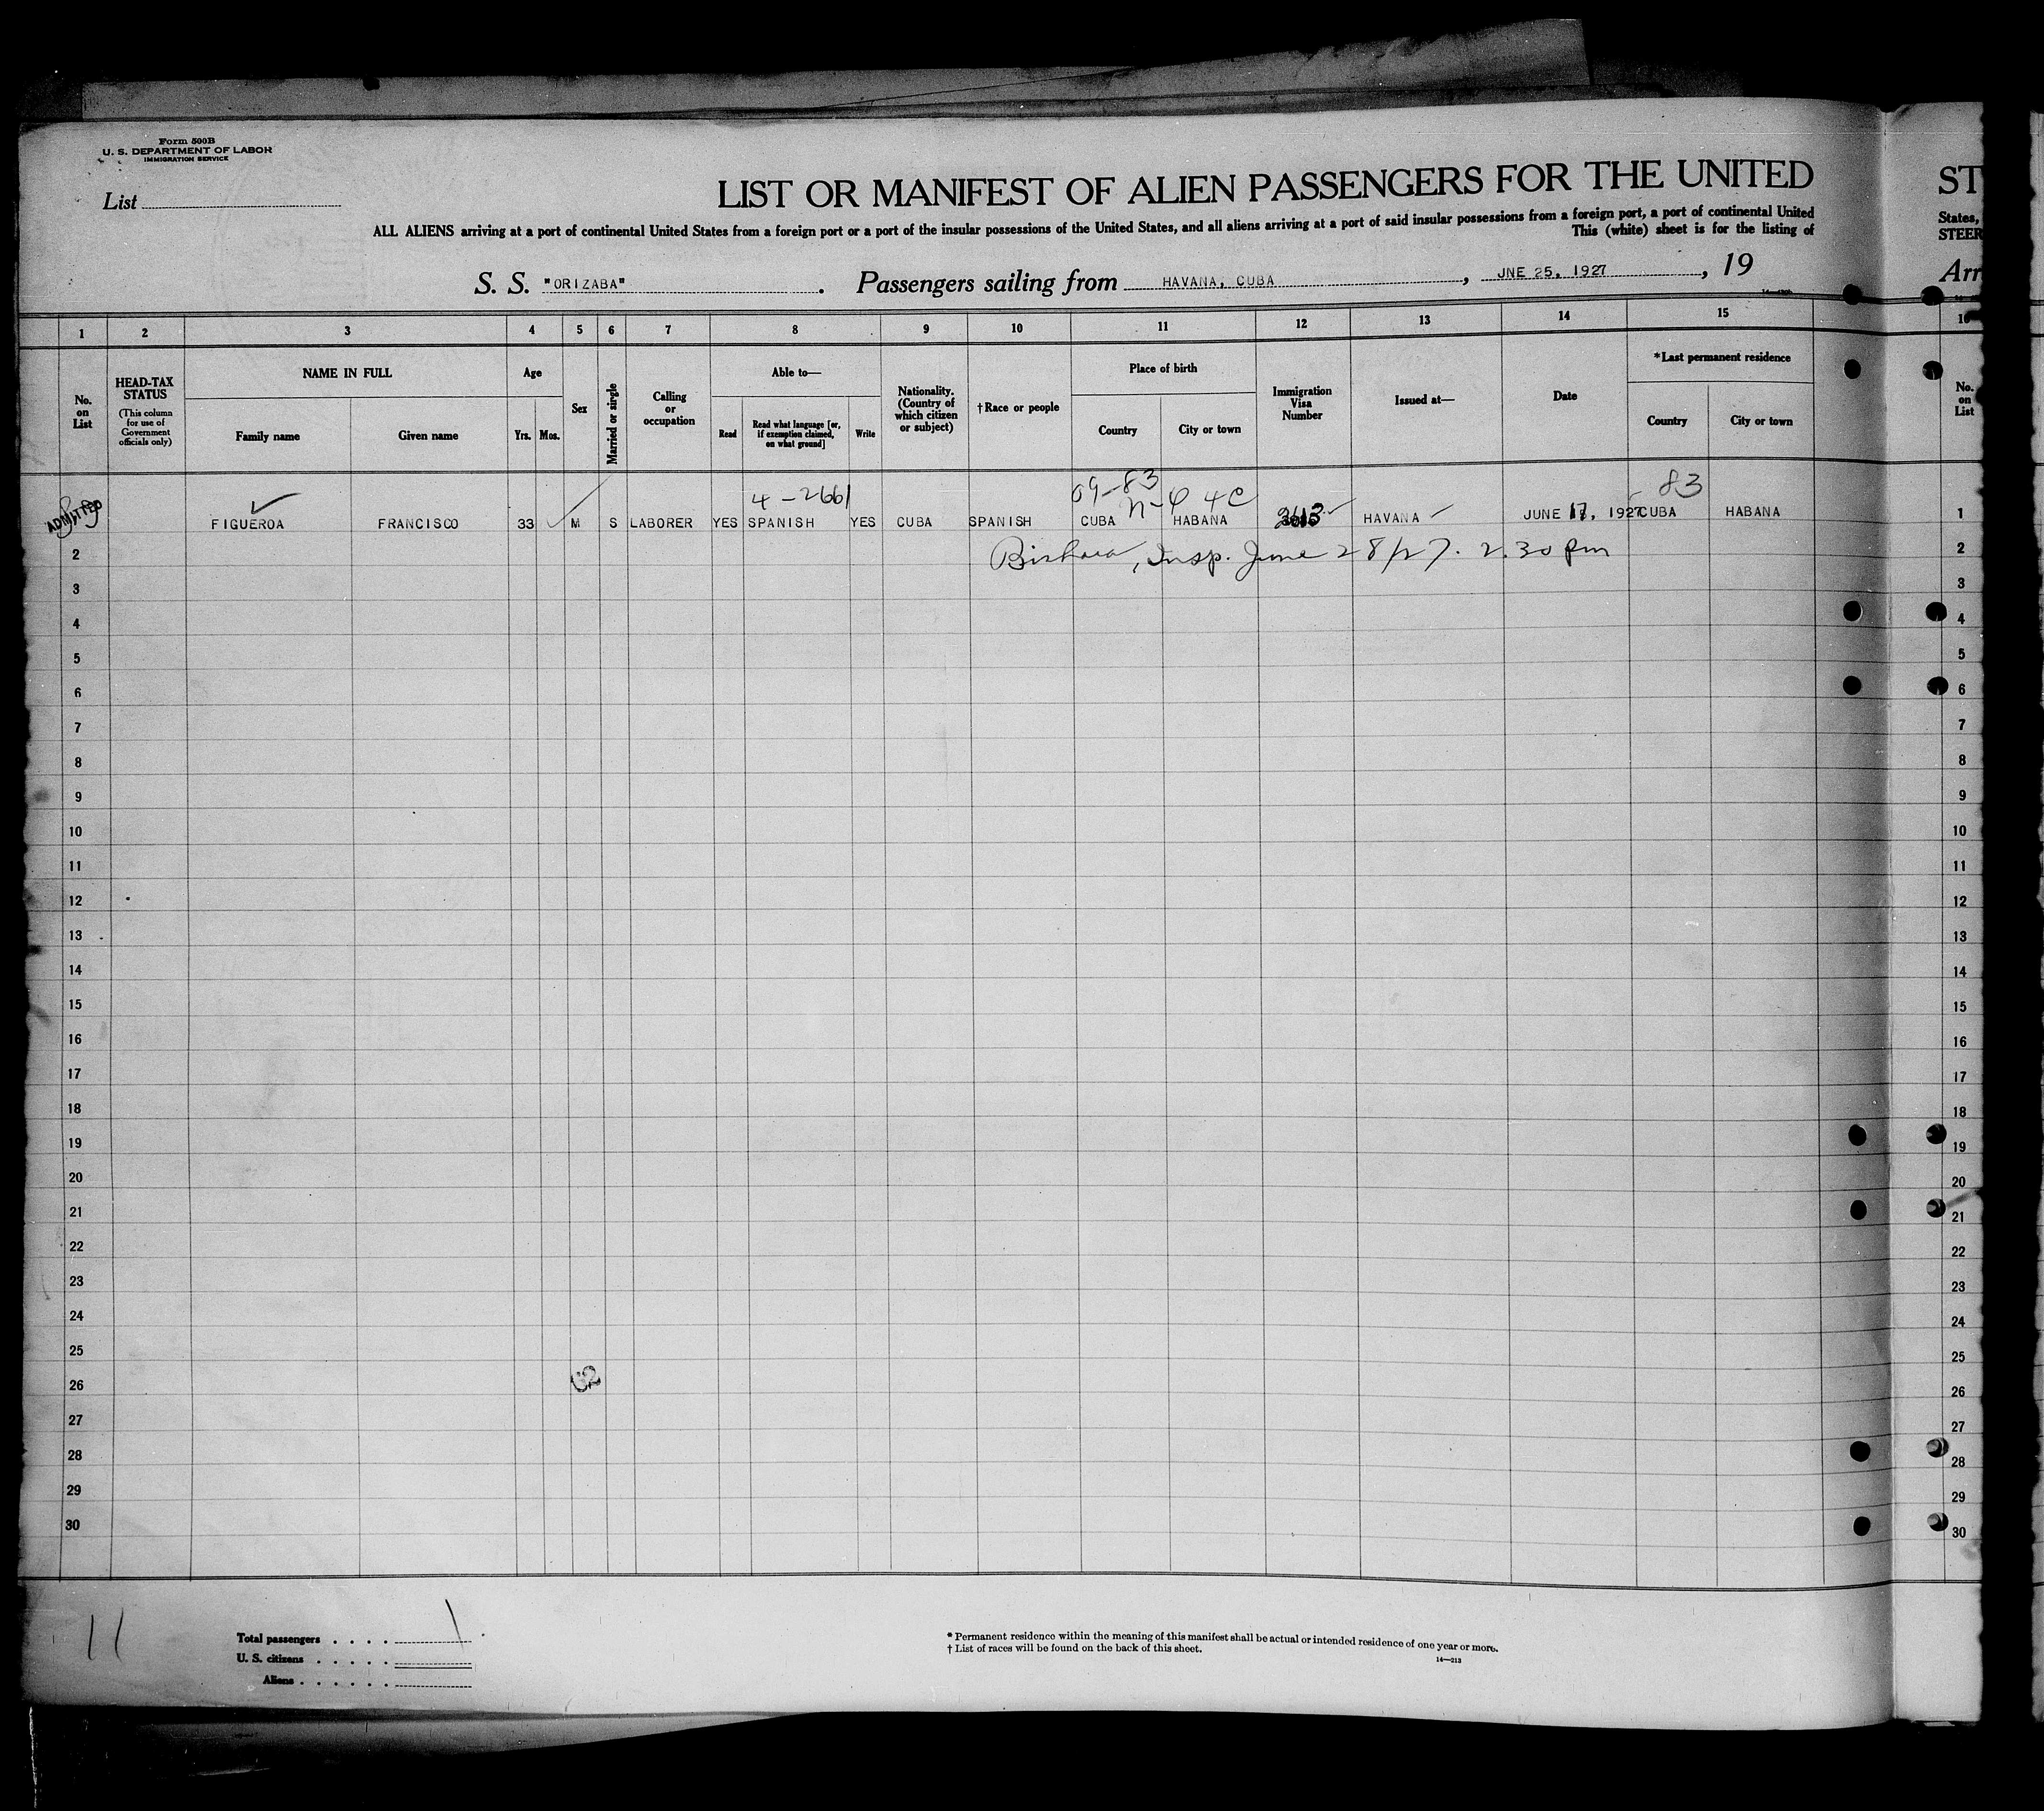 Form 500B
U. S. DEPARTMENT OF LABOR
IMMIGRATION SERVICE
List
LIST OR MANIFEST OF ALIEN PASSENGERS FOR THE UNITED
ALL ALIENS arriving at a port of continental United States from a foreign port or a port of the insular possessions of the United States, and all aliens arriving at a port of said insular possessions from a foreign port, a port of continental United
This (white) sheet is for the listing of
S. S. "ORIZABA". Passengers sailing from HAVANA, CUBA, JNE 25, 1927, 19
ST
States,
STEER
Arr
1 2 3 4 5 6 7 8 9 10 11 12 13 14 15
No. on List
HEAD-TAX STATUS
(This column for use of Government officials only)
NAME IN FULL
Family name
Given name
Age
Yrs.
Mos.
Sex
Married or single
Calling or occupation
Able to—
Read
Read what language [or, if exemption claimed, on what ground]
Write
Nationality. (Country of which citizen or subject)
†Race or people
Place of birth
Country
City or town
Immigration Visa Number
Issued at—
Date
*Last permanent residence
Country
City or town
No. on List
4-2661
09-83
83
ADMITTED
1 FIGUEROA FRANCISCO 33 M S LABORER YES SPANISH YES CUBA SPANISH CUBA HABANA HAVANA JUNE 17, 1927 CUBA HABANA 1
2 Insp. June 28/27. 2.30 pm 2
3 3
4 4
5 5
6 6
7 7
8 8
9 9
10 10
11 11
12 12
13 13
14 14
15 15
16 16
17 17
18 18
19 19
20 20
21 21
22 22
23 23
24 24
25 25
26 26
27 27
28 28
29 29
30 30
11
Total passengers . . . .
U. S. citizens . . . . .
Aliens . . . . . .
* Permanent residence within the meaning of this manifest shall be actual or intended residence of one year or more.
† List of races will be found on the back of this sheet.
14—213